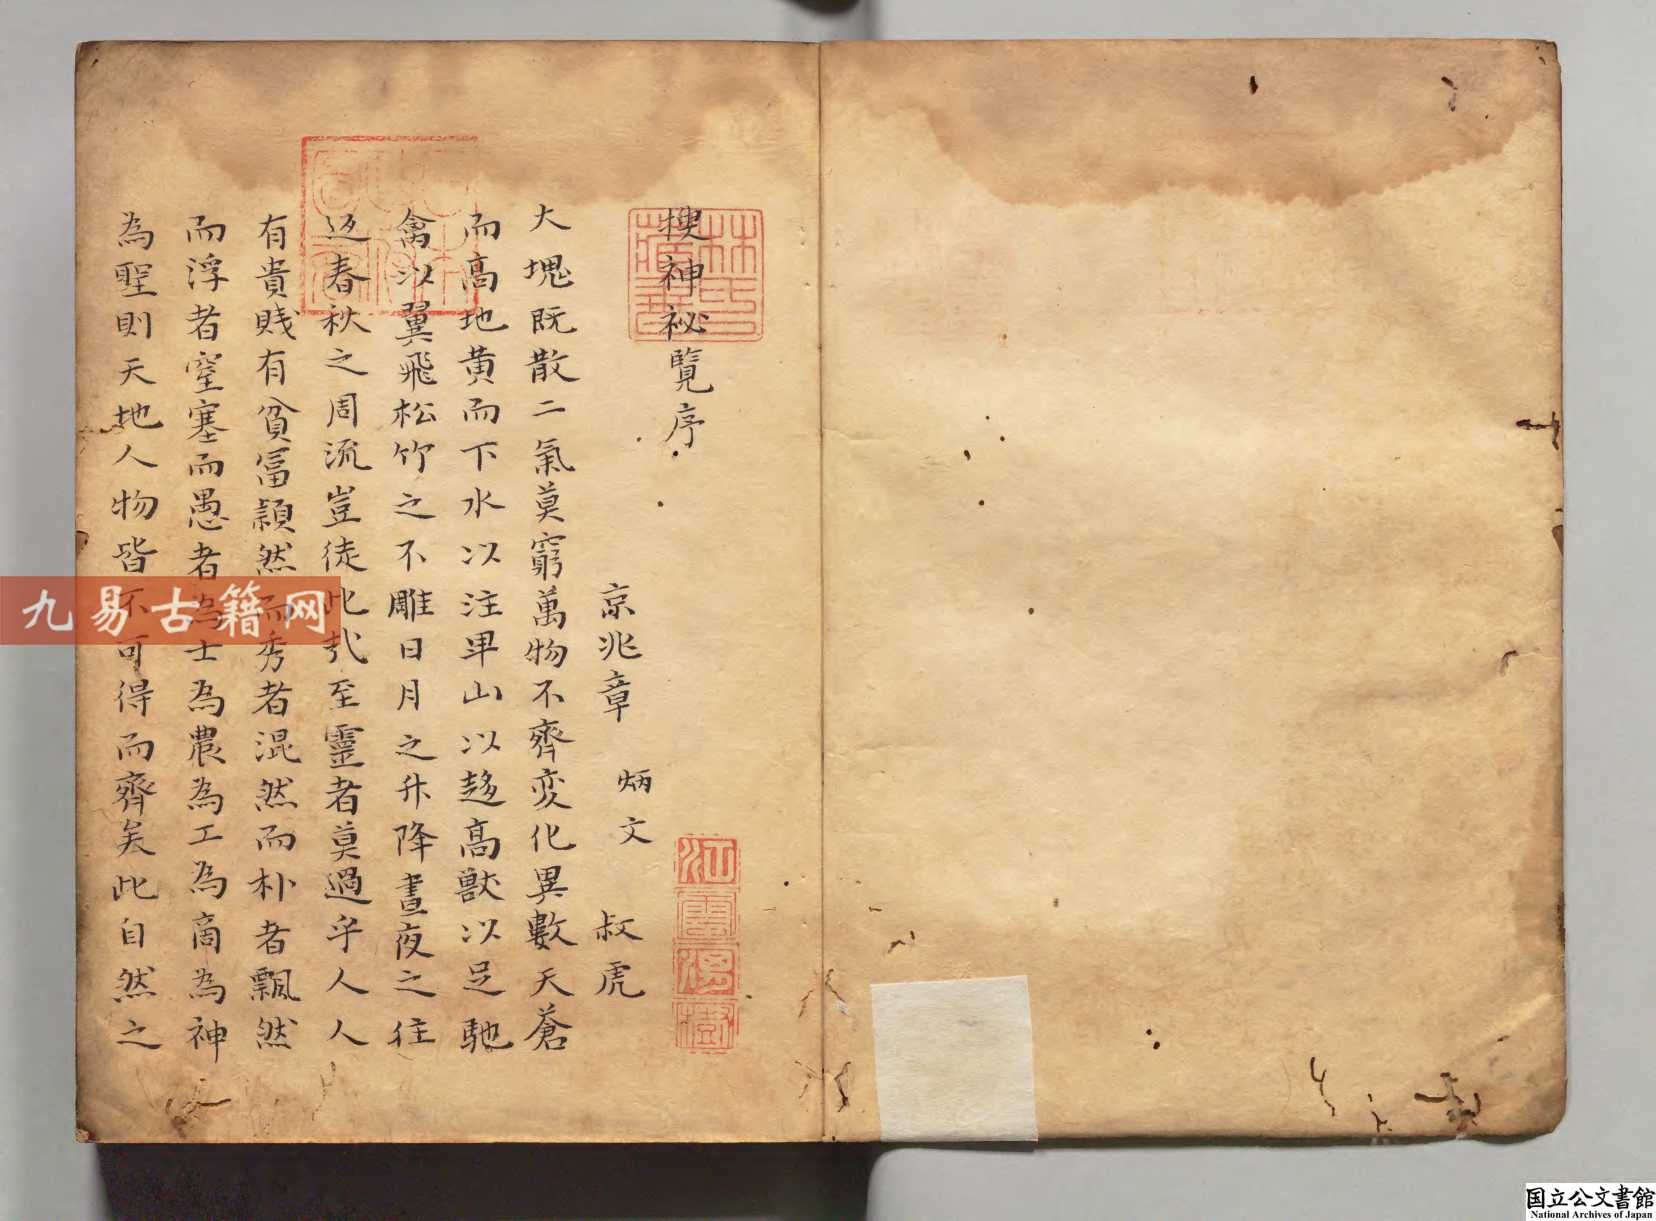 搜神祕覽序
京兆章 炳文 叔虎
大塊既散二氣莫窮萬物不齊変化異數天蒼
而高地黄而下水以注卑山以趍高獸以足馳
禽以翼飛松竹之不雕日月之升降晝夜之往
返春秋之周流豈徒此㢤至靈者莫過乎人人
有貴賎有貧冨頴然而秀者混然而朴者飄然
而浮者窒塞而愚者為士為農為工為商為神
為聖則天地人物皆不可得而齊矣此自然之
林氏藏書
江雲渭樹
九易古籍网
国立公文書館
National Archives of Japan